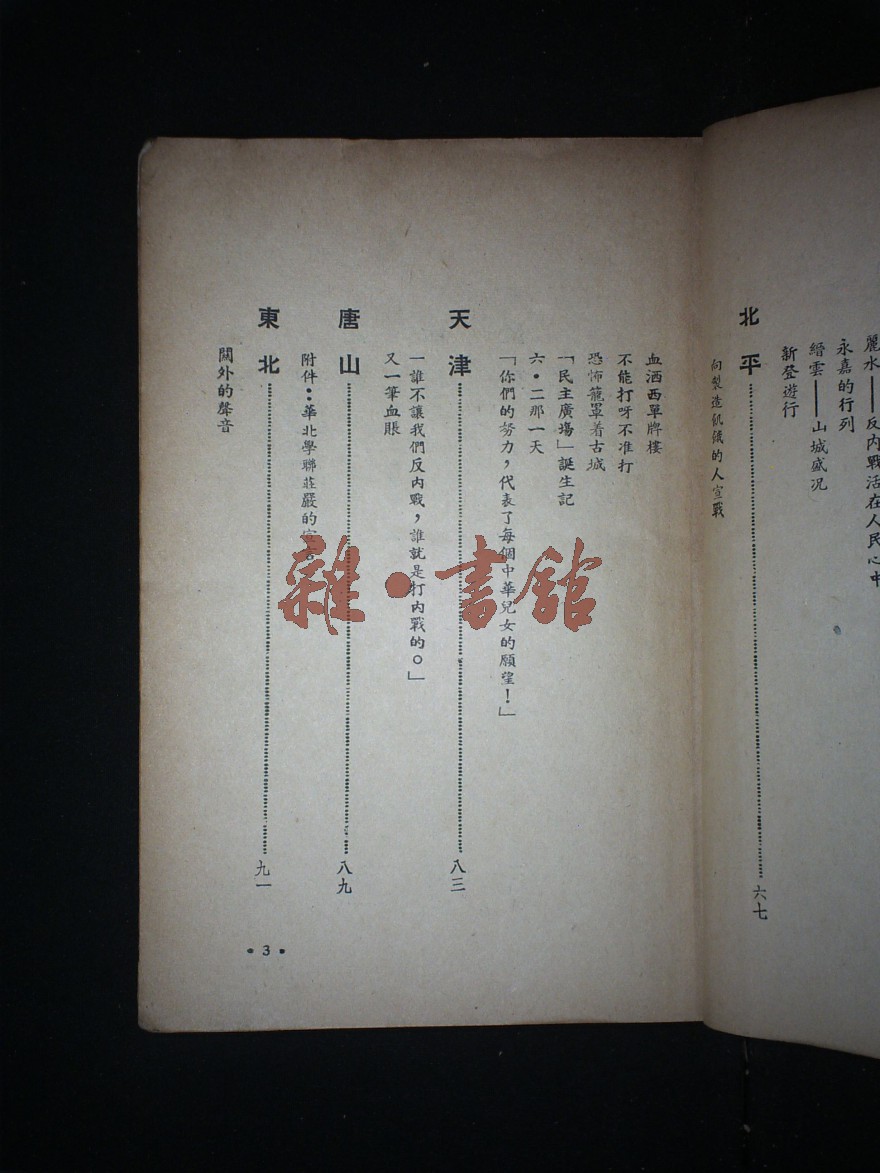 麗水——反內戰活在人民心中
永嘉的行列
縉雲——山城盛况
新登遊行
北平 六七
向製造飢餓的人宣戰
血洒西單牌樓
不能打呀不准打
恐怖籠罩着古城
「民主廣場」誕生記
六・二那一天
「你們的努力，代表了每個中華兒女的願望！」
天津 八三
「誰不讓我們反內戰，誰就是打內戰的。」
又一筆血賬
唐山 八九
附件：華北學聯莊嚴的宣言
東北 九一
關外的聲音
• 3 •
雜・書館